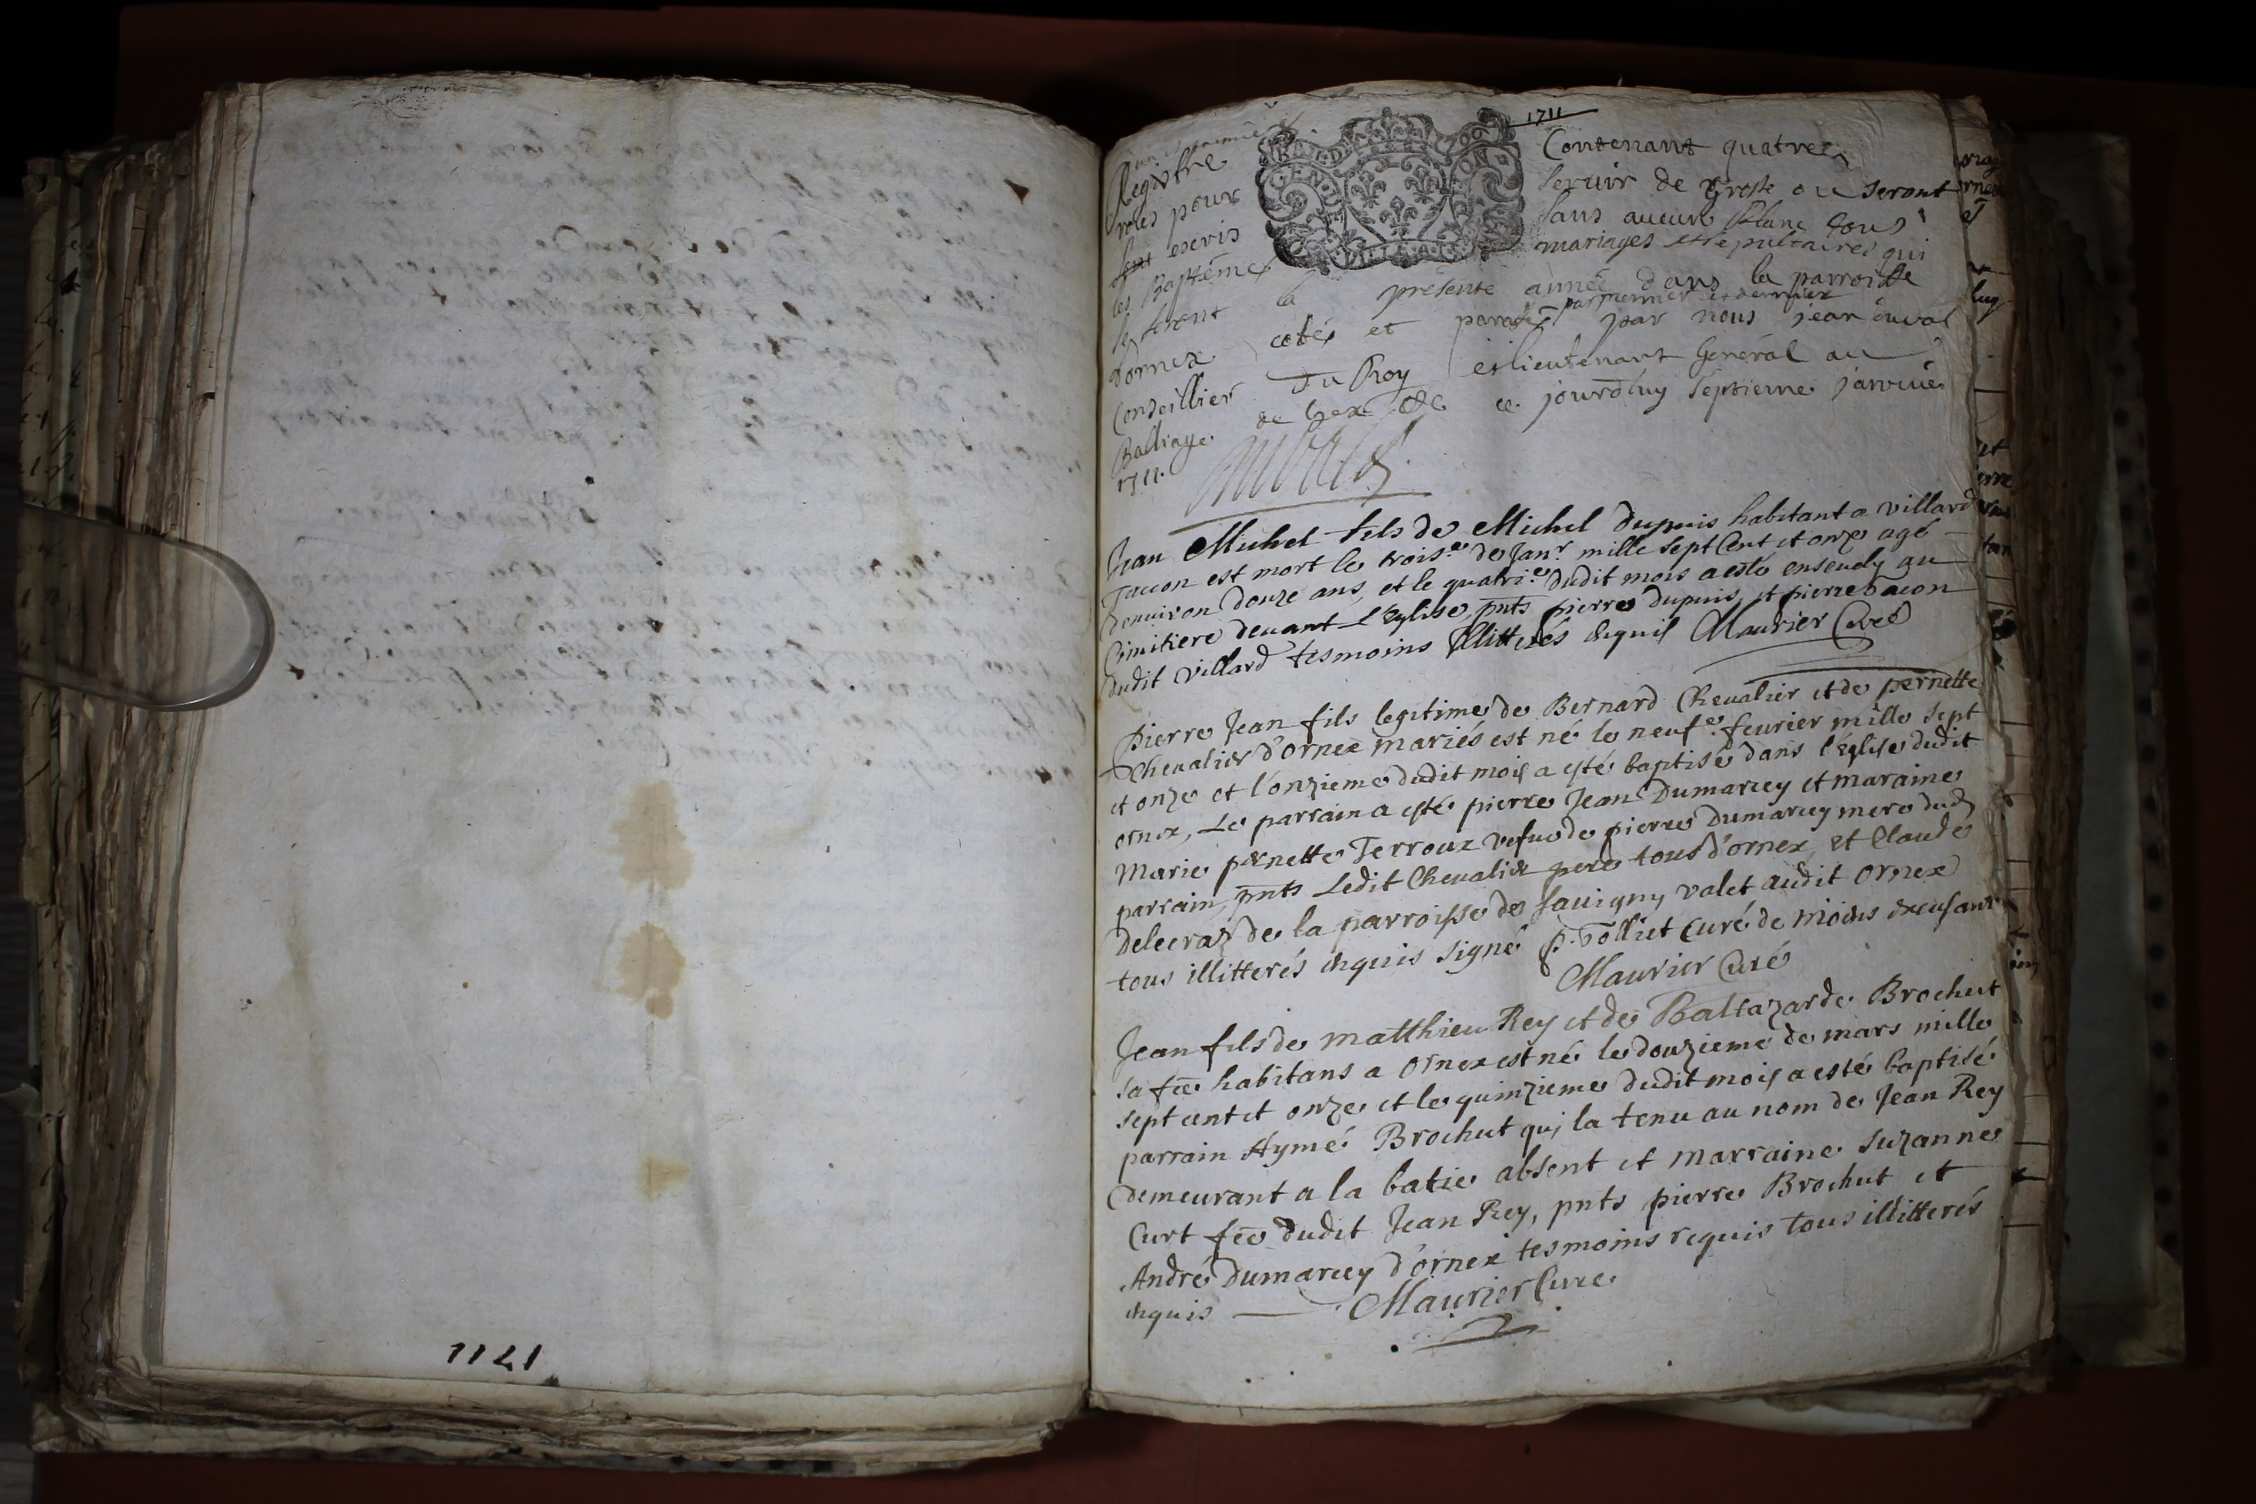 1121
1711
Registre Contenant quatre
roles pour servir de grosse ou seront
escris sans aucun blanc tous
les Baptêmes mariages et sepultures qui
se feront la présente année dans la parroisse
par premier et dernier
d'ornex cotés et paraphé par nous jean
Conseillier Du Roy et lieutenant Général au
Balliage de Gex ce jourdhuy septieme janvier
1711.
Jean Michel fils de Michel Dupuis habitant a villard
Taccon est mort le trois.e de Jan.r mille sept Cent et onze agé
d'enuiron douze ans, et le quatri.e dudit mois a esté enseuely au
Cimitiere deuant L'Eglise, pnts pierre dupuis, et pierre bacon
dudit villard tesmoins illitterés enquis Maurier Curé
Pierre Jean fils legitime de Bernard Cheualier et de pernette
Cheualier d'ornex mariés est né le neuf.e feurier mille sept
et onze et l'onzieme dudit mois a esté baptisé dans l'Eglise dudit
ornex, Le parrain a esté pierre Jean Dumarcey et maraine
Marie pernette Terroux vefue de pierre Dumarcey mere dud
parrain, pnts Ledit Cheualier pere tous d'ornex, et Claude
Delecraz de la parroisse de sauigny valet audit ornex
tous illitterés enquis signé P. Tolliet Curé de moëns excusant
Maurier Curé
Jean fils de Matthieu Rey et de Baltazarde Brochut
sa fẽe habitans a ornex est né le douzieme de mars mille
sept cent et onze et le quinzieme dudit mois a esté baptisé
parrain Aymé Brochut qui la tenu au nom de Jean Rey
demeurant a la batie absent et marraine suzanne
Curt fẽe dudit Jean Rey, pnts pierre Brochut et
André Dumarcey d'ornex tesmoins requis tous illitterés
enquis Maurier Curé